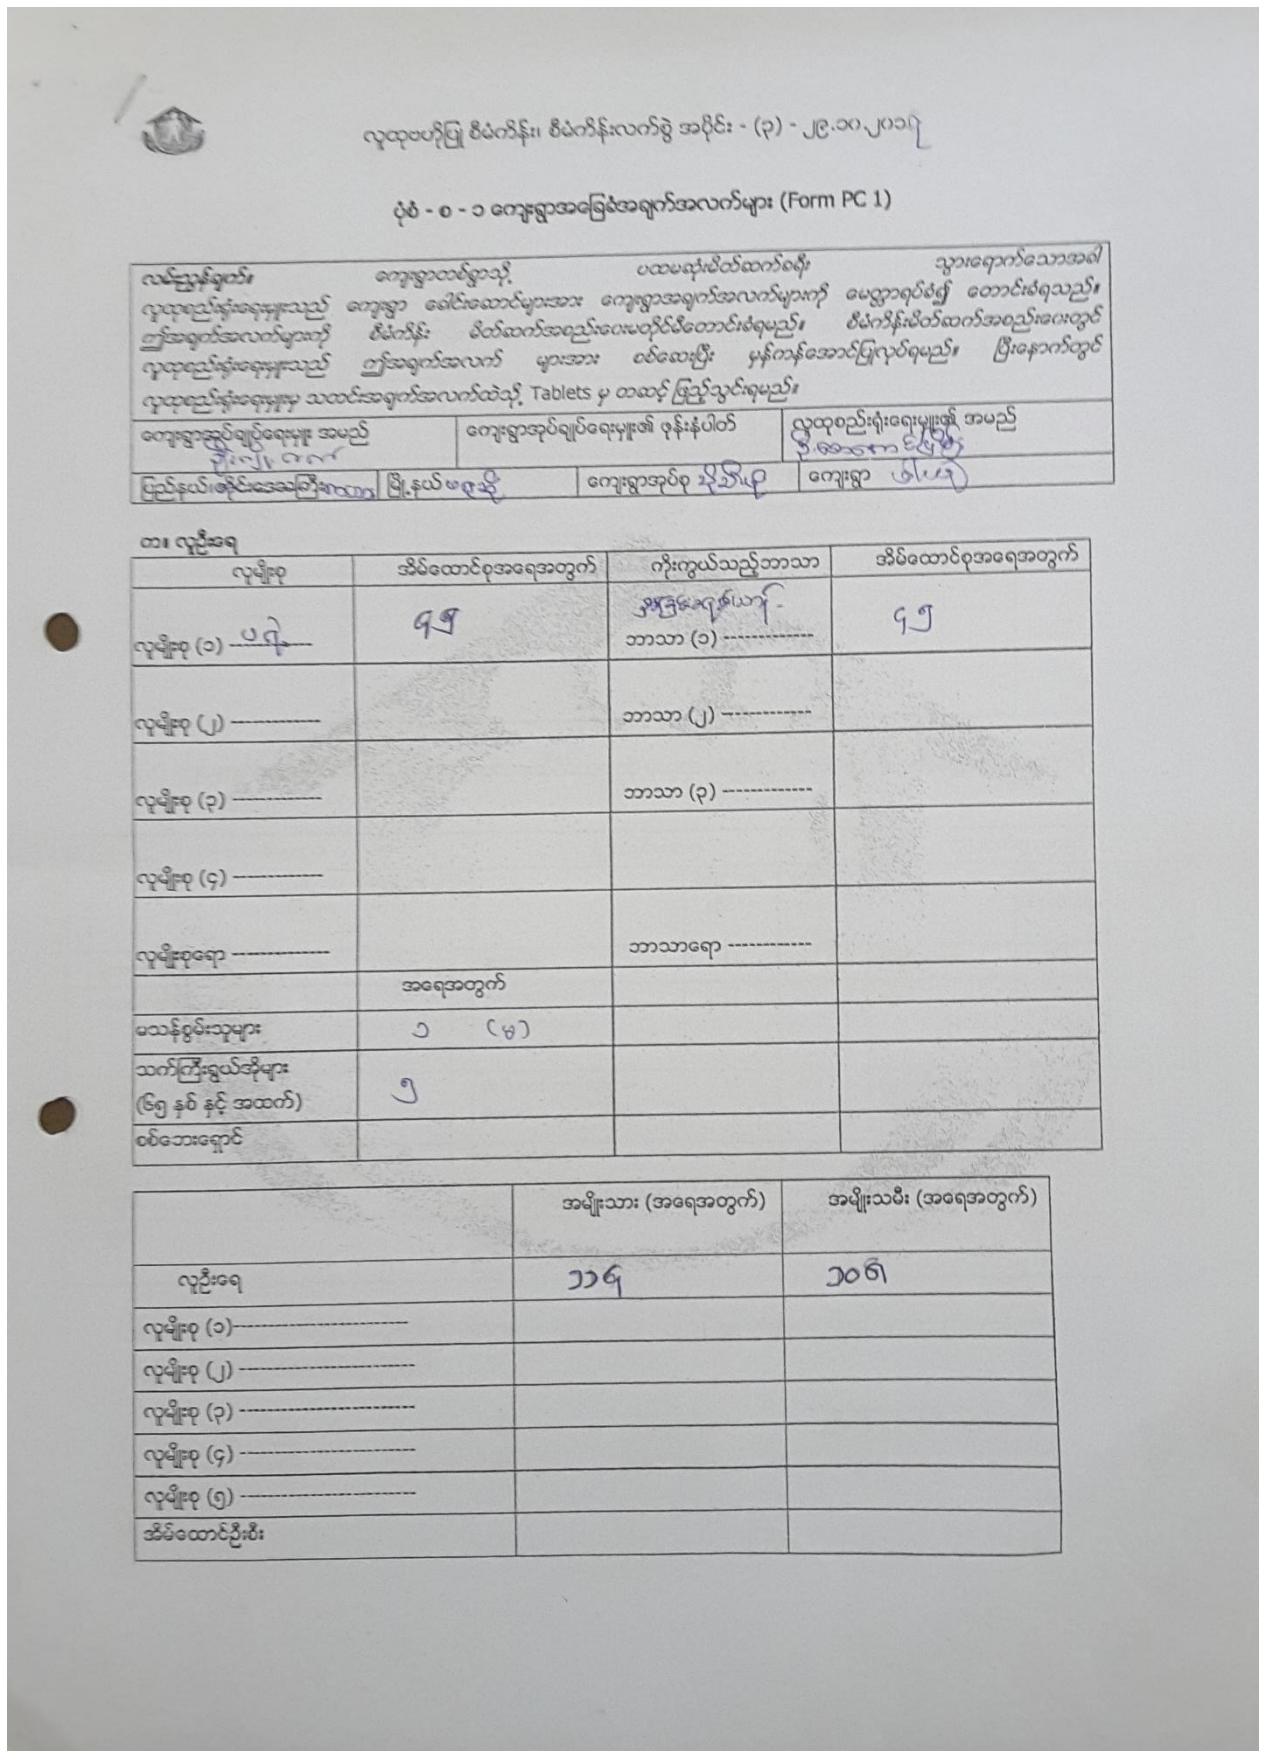 လူထုဗဟိုပြု စီမံကိန်း၊ စီမံကိန်းလက်စွဲ အပိုင်း - (၃) - ၂၉.၁၀.၂၀၁၇
ပုံစံ - စ - ၁ ကျေးရွာအခြေခံအချက်အလက်များ (Form PC 1)
လမ်းညွှန်ချက်။ ကျေးရွာတစ်ရွာသို့ ပထမဆုံးမိတ်ဆက်ခရီး သွားရောက်သောအခါ
လူထုစည်းရုံးရေးမှူးသည် ကျေးရွာ ခေါင်းဆောင်များအား ကျေးရွာအချက်အလက်များကို မေတ္တာရပ်ခံ၍ တောင်းခံရသည်။
ဤအချက်အလက်များကို စီမံကိန်း မိတ်ဆက်အစည်းဝေးမတိုင်မီတောင်းခံရမည်။ စီမံကိန်းမိတ်ဆက်အစည်းဝေးတွင်
လူထုစည်းရုံးရေးမှူးသည် ဤအချက်အလက် များအား စစ်ဆေးပြီး မှန်ကန်အောင်ပြုလုပ်ရမည်။ ပြီးနောက်တွင်
လူထုစည်းရုံးရေးမှူးမှ သတင်းအချက်အလက်ထဲသို့ Tablets မှ တဆင့် ဖြည့်သွင်းရမည်။
ကျေးရွာအုပ်ချုပ်ရေးမှူး အမည် ကျေးရွာအုပ်ချုပ်ရေးမှူး၏ ဖုန်းနံပါတ် လူထုစည်းရုံးရေးမှူး၏ အမည်
ပြည်နယ်၊တိုင်းဒေသကြီး မြို့နယ် ကျေးရွာအုပ်စု ကျေးရွာ
တ။ လူဦးရေ
လူမျိုးစု အိမ်ထောင်စုအရေအတွက် ကိုးကွယ်သည့်ဘာသာ အိမ်ထောင်စုအရေအတွက်
လူမျိုးစု (၁) ------------- ၄၅ ဘာသာ (၁) ------------- ၄၅
လူမျိုးစု (၂) ------------- ဘာသာ (၂) -------------
လူမျိုးစု (၃) ------------- ဘာသာ (၃) -------------
လူမျိုးစု (၄) -------------
လူမျိုးစုရော -------------- ဘာသာရော ------------
အရေအတွက်
မသန်စွမ်းသူများ ၁ (မ)
သက်ကြီးရွယ်အိုများ
(၆၅ နှစ် နှင့် အထက်) ၅
စစ်ဘေးရှောင်
အမျိုးသား (အရေအတွက်) အမျိုးသမီး (အရေအတွက်)
လူဦးရေ ၁၁၄ ၁၀၆
လူမျိုးစု (၁)-------------------------
လူမျိုးစု (၂) -------------------------
လူမျိုးစု (၃) -------------------------
လူမျိုးစု (၄) -------------------------
လူမျိုးစု (၅) -------------------------
အိမ်ထောင်ဦးစီး